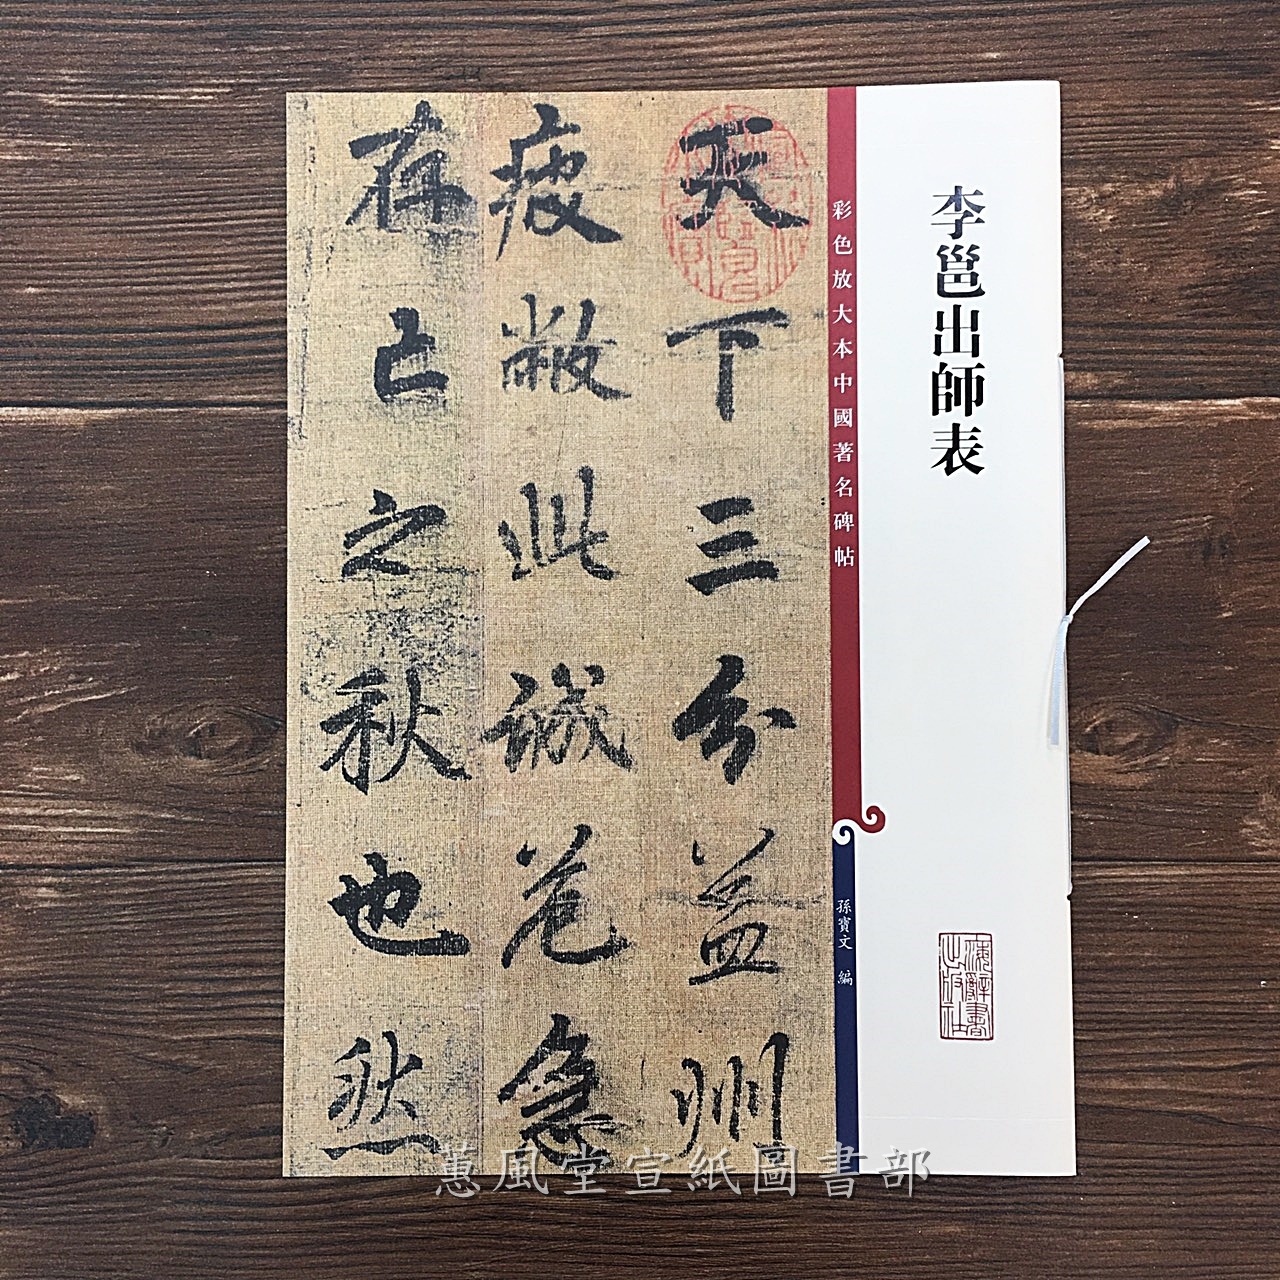 李邕出師表
彩色放大本中國著名碑帖
孫寶文 編
海辭書
出版社
天下三分益州
疲敝此誠危急
存亡之秋也然
蕙風堂宣紙圖書部